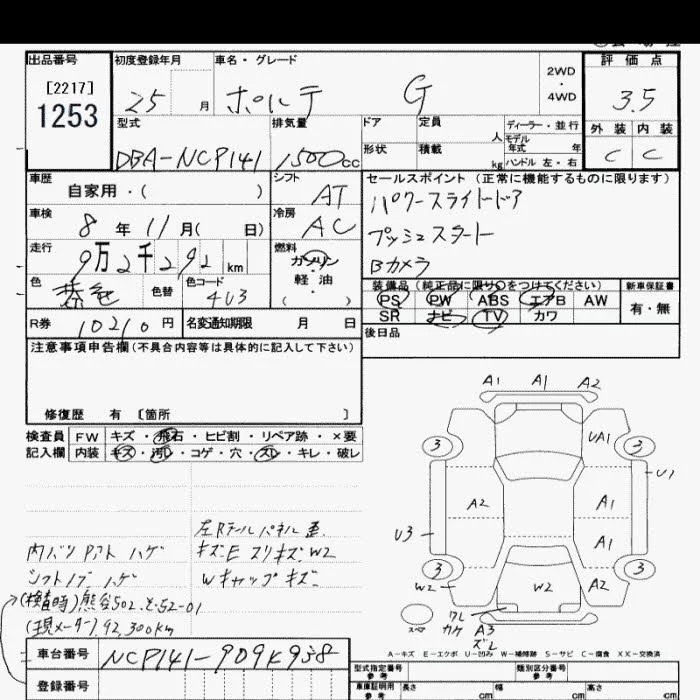 出品番号
[2217]
1253
初度登録年月
25 月
車名・グレード
ポルテ G
2WD
・
4WD
評価点
3.5
外装 内装
C C
型式
DBA-NCP141
排気量
1500cc
ドア
形状
定員 人
積載 kg
ディーラー・並行
モデル
年式 年
ハンドル 左・右
車歴
自家用・( )
シフト
AT
セールスポイント (正常に機能するものに限ります)
パワースライドドア
プッシュスタート
Bカメラ
車検
8年 11月( 日)
冷房
AC
走行
9万2千292 km
燃料
ガソリン
軽・油
( )
色
色替
色コード
4U3
装備品 (純正品に限り○をつけてください)
PS PW ABS エアB AW
SR ナビ TV カワ
新車保証書
有・無
R券 10210円
名変通知期限 月 日
後日品
注意事項申告欄(不具合内容等は具体的に記入して下さい)
修復歴 有 〔箇所 〕
検査員
記入欄
FW キズ・飛石・ヒビ割・リペア跡・×要
内装 キズ・汚レ・コゲ・穴・スレ・キレ・破レ
左Rテールパネル歪
内バリ Pアト ハゲ
キズE スリキズ W2
シフトノブ ハゲ
Wキャップキズ
(検査時)熊谷502 そ52-01
(現メーター) 92,300km
A1 A1 A2
3 UA1 3
U1
A2 A1
U3
A1
3 3
W2 W2 A2
スペア
ワレ
カケ A3
ズレ
A-キズ E-エクボ U-凹み W-補修跡 S-サビ C-腐食 XX-交換済
車台番号
登録番号
型式指定番号
参考
類別区分番号
参考
車庫証明用
参考
長さ cm
幅 cm
高さ cm